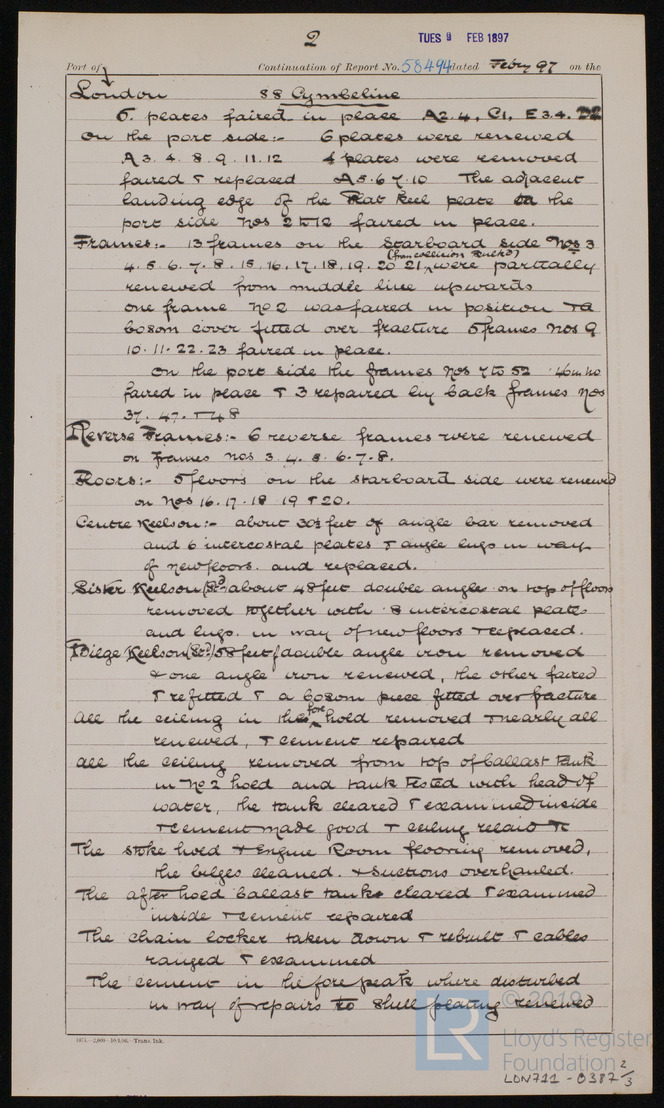 2
TUES 9 FEB 1897
Port of Continuation of Report No. 58494 dated Febry 97 on the
London SS Cymbeline
6 plates faired in place A2.4, C1, E3.4. D2
On the port side:- 6 plates were renewed
A 3. 4. 8. 9. 11. 12 4 plates were removed
faired & replaced A5.6.7.10 The adjacent
landing edge of the flat keel plate on the
port side Nos 2 to 12 faired in place.
Frames:- 13 frames on the Starboard side Nos 3
(from collision bulkd)
4. 5. 6. 7. 8. 15. 16. 17. 18. 19. 20 21 were partially
renewed from middle line upwards
one frame No 2 was faired in position & a
bosom cover fitted over fracture 5 frames Nos 9
10. 11. 22. 23 faired in place.
On the port side the frames Nos 7 to 52 46 in no
faired in place & 3 repaired by back frames Nos
37. 47. & 48
Reverse Frames:- 6 reverse frames were renewed
on frames Nos 3. 4. 5. 6. 7. 8.
Floors:- 5 floors on the starboard side were renewed
on Nos 16. 17. 18 19 & 20.
Centre Keelson:- about 30 feet of angle bar removed
and 6 intercostal plates & angle lugs in way
of new floors. and replaced.
Sister Keelson (Sd) about 48 feet double angle on top of floors
removed together with 8 intercostal plates
and lugs. in way of new floors & replaced.
Bilge Keelson (Sd) 58 feet of double angle iron removed
& one angle iron renewed, the other faired
& refitted & a bosom piece fitted over fracture
All the ceiling in the fore hold removed & nearly all
renewed, & cement repaired
All the ceiling removed from top of ballast tank
in No 2 hold and tank tested with head of
water, the tank cleared & examined inside
& cement made good & ceiling relaid &c
The stoke hold & Engine Room flooring removed,
the bilges cleaned. & suctions overhauled.
The after hold ballast tanks cleared & examined
inside & cement repaired
The chain locker taken down & rebuilt & cables
ranged & examined
The cement in the fore peak where disturbed
in way of repairs to shell plating renewed
© 2019
LR
Lloyd's Register
Foundation
LON711 - 0387 2/3